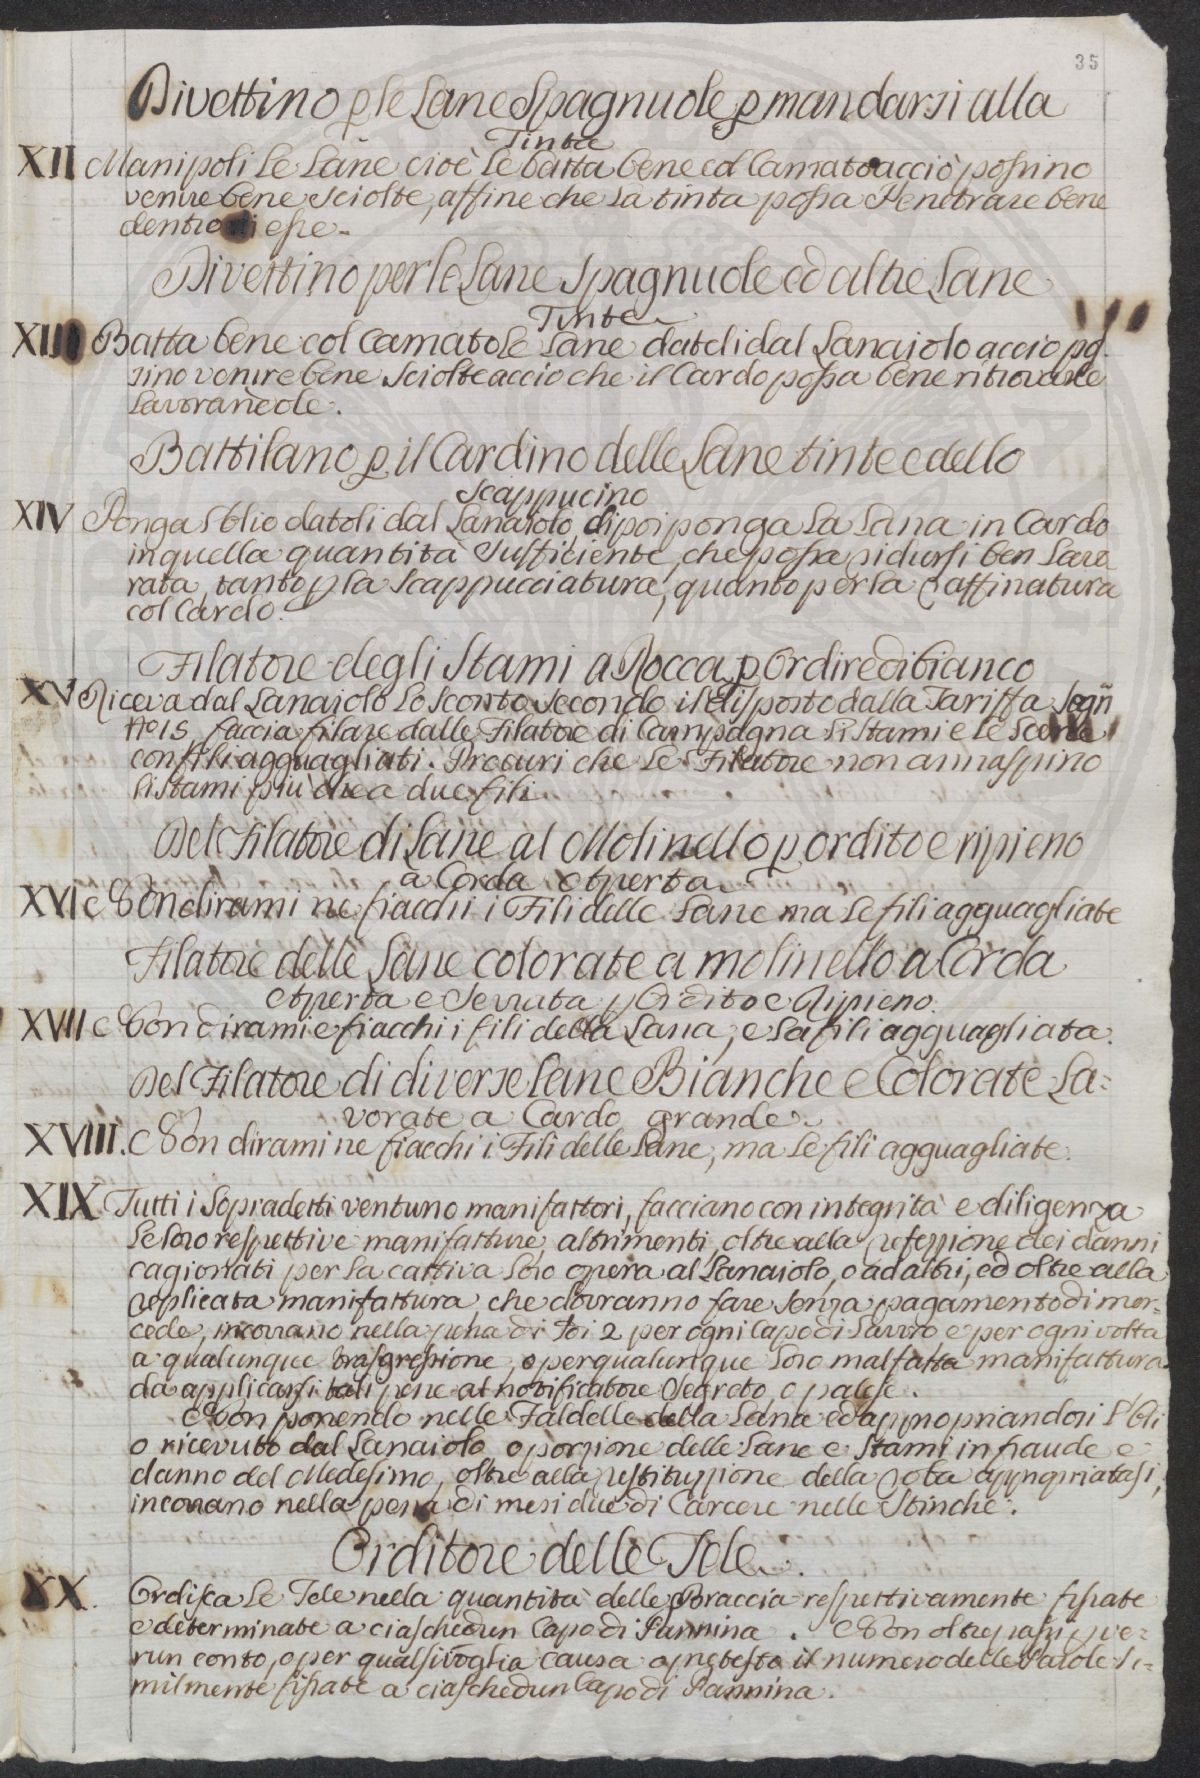 35
Divettino p le Lane Spagnuole p mandarsi alla
Tinta
XII Manipoli le Lane cioè le batta bene col Camato acciò possino
venire bene sciolte, affine che la tinta possa Penetrare bene
dentro di esse.
Divettino per le Lane Spagnuole ed altre Lane
Tinte
XIII Batta bene col Camato le Lane dateli dal Lanaiolo accio pos
sino venire bene sciolte accio che il Cardo possa bene ritrovarle
Lavorandole.
Battilano p il Cardino delle Lane tinte e dello
Scappucino
XIV Ponga l'Olio datoli dal Lanaiolo, di poi ponga la Lana in Cardo
in quella quantità sufficiente, che possa ridursi ben Lavo
rata, tanto p la Scappucciatura, quanto per la raffinatura
col Cardo.
Filatore degli Stami a Rocca p Ordire di bianco
XV Riceva dal Lanaiolo lo sconto secondo il disposto dalla Tariffa Segñ
Nº 15 faccia filare dalle Filatore di Campagna li Stami e le
con fili agguagliati. Procuri che le Filatore non annaspino
li stami più che a due fili
Del Filatore di Lane al Molinello p ordito e ripieno
a Corda Aperta
XVI Non dirami ne fiacchi i Fili delle Lane ma le fili agguagliate
Filatore delle Lane colorate a molinello a Corda
Aperta e Serrata p Ordito e Ripieno.
XVII Non dirami e fiacchi i fili della Lana, e la fili agguagliata.
Del Filatore di diverse Lane Bianche e Colorate La=
vorate a Cardo grande
XVIII. Non dirami ne fiacchi i Fili delle Lane, ma le fili agguagliate.
XIX Tutti i Sopradetti ventuno manifattori, facciano con integrità e diligenza
le loro respettive manifatture, altrimenti, oltre alla refezzione dei danni
cagionati per la cattiva loro opera al Lanaiolo, o ad altri, ed oltre alla
replicata manifattura che dovranno fare senza pagamento di mer=
cede, incorrano nella pena di 2 per ogni Capo di Lavoro e per ogni volta
a qualunque trasgressione, o per qualunque loro malfatta manifattura
da applicarsi tali pene al notificatore Segreto, o palese.
Non ponendo nelle Faldelle della Lana ed appropriandosi l'Oli
o ricevuto dal Lanaiolo, o porzione delle Lane e Stami in fraude e
danno del Medesimo, oltre alla restituzzione della roba appropriatasi,
incorrano nella pena di mesi due di Carcere nelle Stinche.
Orditore delle Tele.
XX. Ordisca le Tele nella quantità delle Braccia respettivamente fissate
e determinate a ciaschedun Capo di Pannina. Non oltrepassi p ve=
run conto, o per qualsivoglia causa o pretesto il numero delle Paiole si=
milmente fissate a ciaschedun Capo di Pannina.